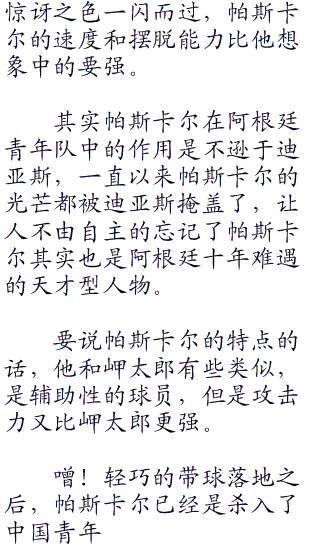 惊讶之色一闪而过，帕斯卡
尔的速度和摆脱能力比他想
象中的要强。
其实帕斯卡尔在阿根廷
青年队中的作用是不逊于迪
亚斯，一直以来帕斯卡尔的
光芒都被迪亚斯掩盖了，让
人不由自主的忘记了帕斯卡
尔其实也是阿根廷十年难遇
的天才型人物。
要说帕斯卡尔的特点的
话，他和岬太郎有些类似，
是辅助性的球员，但是攻击
力又比岬太郎更强。
噌！轻巧的带球落地之
后，帕斯卡尔已经是杀入了
中国青年